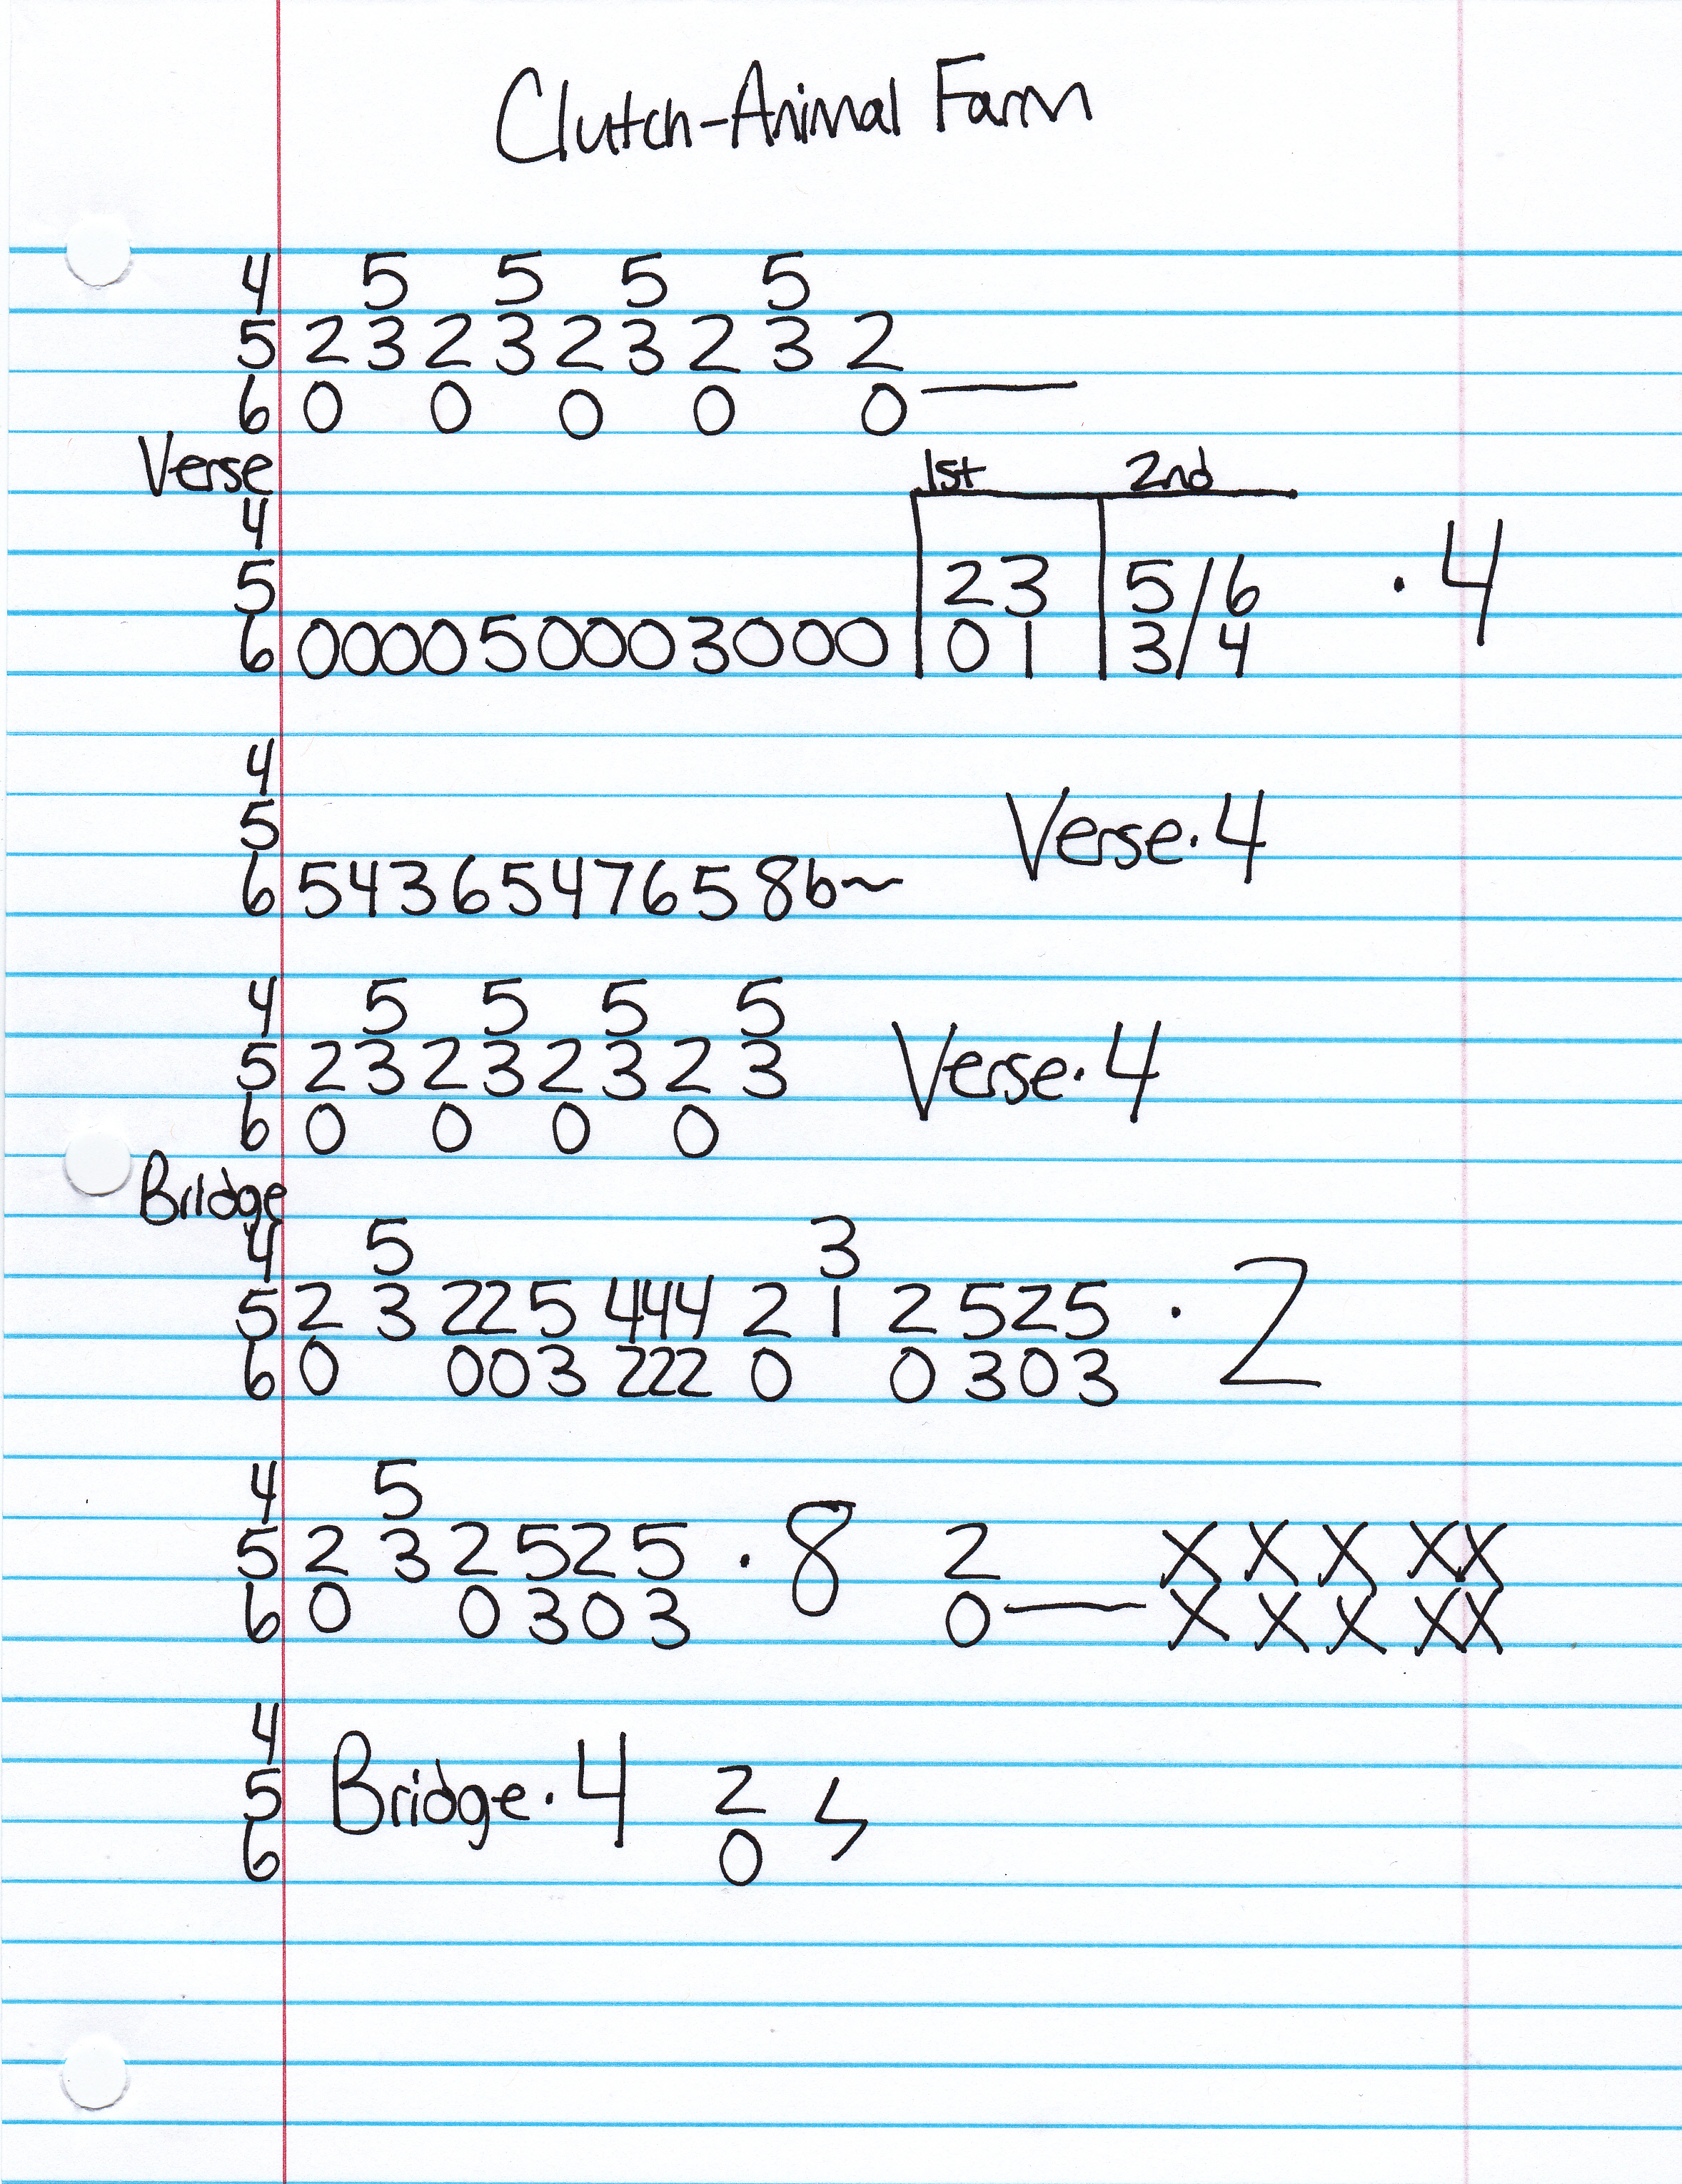 Clutch-Animal Farm
4 5 5 5 5
5 2 3 2 3 2 3 2 3 2
6 0 0 0 0 0
Verse 1st 2nd
4
5 2 3 5/6 · 4
6 0000500030000 0 1 3/4
4
5 Verse · 4
6 54365476586~
4 5 5 5 5
5 2 3 2 3 2 3 2 3 Verse · 4
6 0 0 0 0
Bridge
4 5 3
5 2 3 22 5 444 2 1 2 525 · 2
6 0 003 222 0 0 303
4 5
5 2 3 2 525 · 8 2 X X X XX
6 0 0 303 0— X X X XX
4
5 Bridge · 4 2
6 0